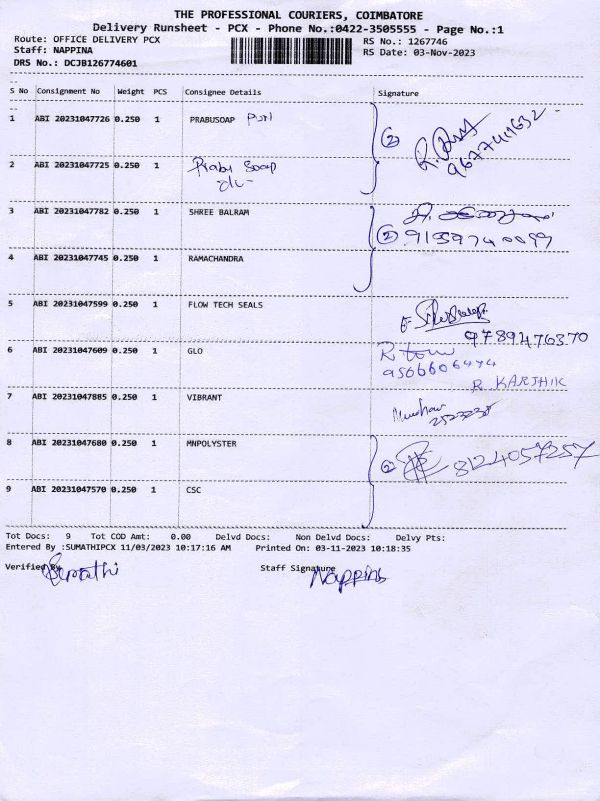 THE PROFESSIONAL COURIERS, COIMBATORE
Delivery Runsheet - PCX - Phone No.:0422-3505555 - Page No.:1
Route: OFFICE DELIVERY PCX RS No.: 1267746
Staff: NAPPINA RS Date: 03-Nov-2023
DRS No.: DCJB126774601
S No Consignment No Weight PCS Consignee Details Signature
1 ABI 20231047726 0.250 1 PRABUSOAP
2 9677411632
2 ABI 20231047725 0.250 1 Prabu Soap
3 ABI 20231047782 0.250 1 SHREE BALRAM
2 9159740099
4 ABI 20231047745 0.250 1 RAMACHANDRA
5 ABI 20231047599 0.250 1 FLOW TECH SEALS
9789476370
6 ABI 20231047609 0.250 1 GLO
9566606474
R KARTHIK
7 ABI 20231047885 0.250 1 VIBRANT
8 ABI 20231047680 0.250 1 MNPOLYSTER
2 8124057257
9 ABI 20231047570 0.250 1 CSC
Tot Docs: 9 Tot COD Amt: 0.00 Delvd Docs: Non Delvd Docs: Delvy Pts:
Entered By :SUMATHIPCX 11/03/2023 10:17:16 AM Printed On: 03-11-2023 10:18:35
Verified By Sumathi Staff Signature Nappina